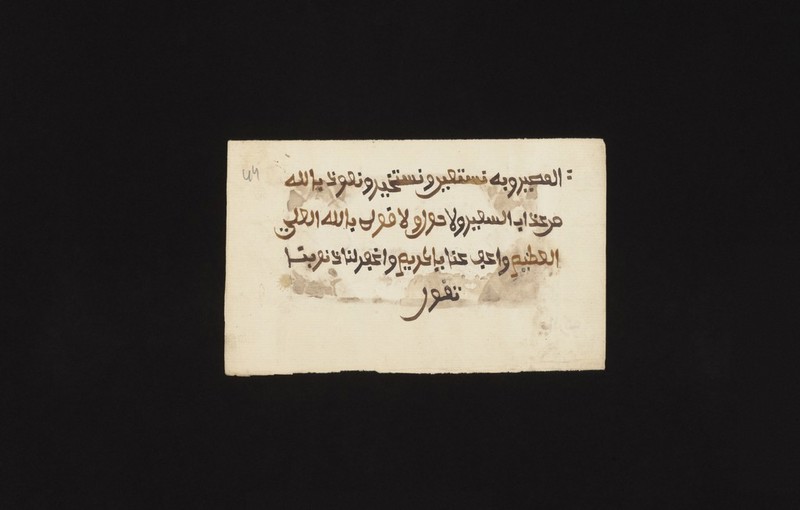 المصير وبه نستعين ونستخير ونعوذ بالله
من عذاب السعير ولا حول ولا قوة بالله العلي
العظيم واعف عنا يا كريم واغفر لنا ذنوبنا
تقول